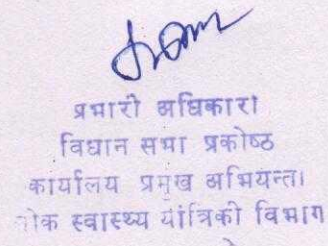 प्रभारी अधिकारी
विधान सभा प्रकोष्ठ
कार्यालय प्रमुख अभियन्ता
लोक स्वास्थ्य यांत्रिकी विभाग